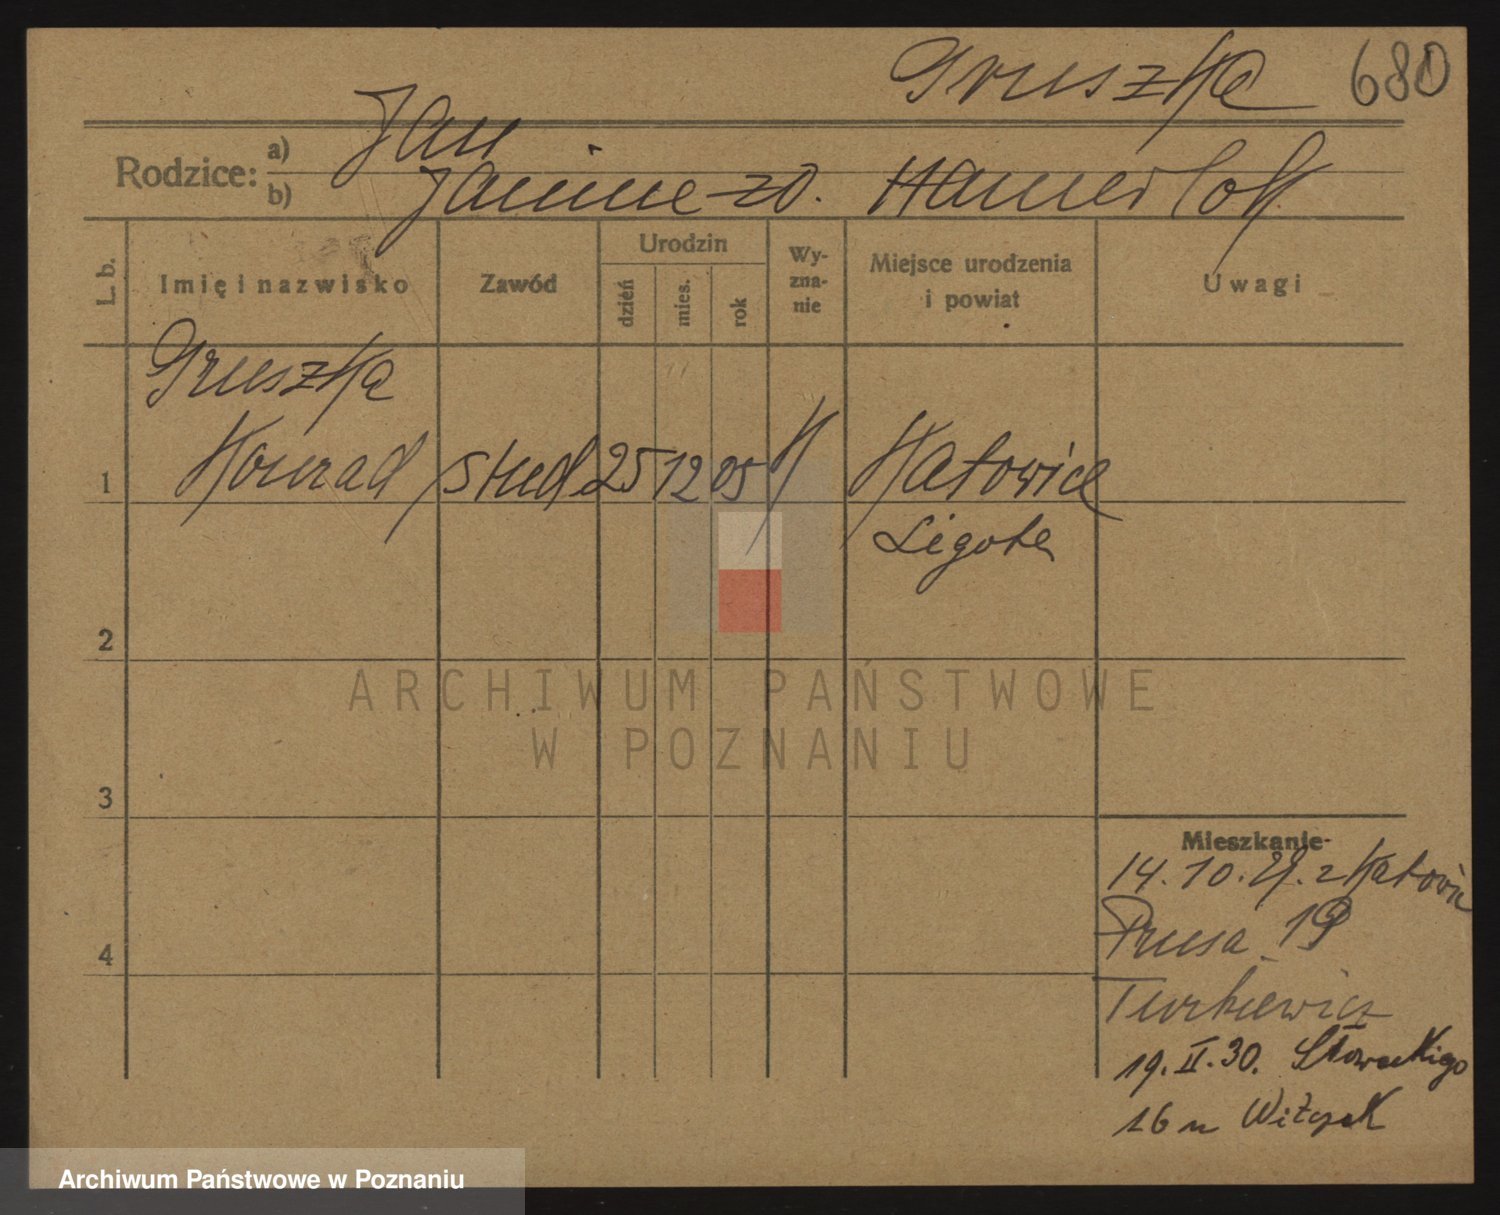 Gruszka 680
Rodzice:
a) Jan
b) Janine zd. Hamerlok
L. b.
Imię i nazwisko
Zawód
Urodzin
dzień
mies.
rok
Wy-
zna-
nie
Miejsce urodzenia
i powiat
Uwagi
Gruszka
1 Konrad stud. 25 12 05 K Katowice
Ligota
2
ARCHIWUM PAŃSTWOWE
W POZNANIU
3
Mieszkanie
14.10. z Katowic
Prusa 19
4
Turkiewicz
19.II.30. Słowackiego
16 u
Archiwum Państwowe w Poznaniu